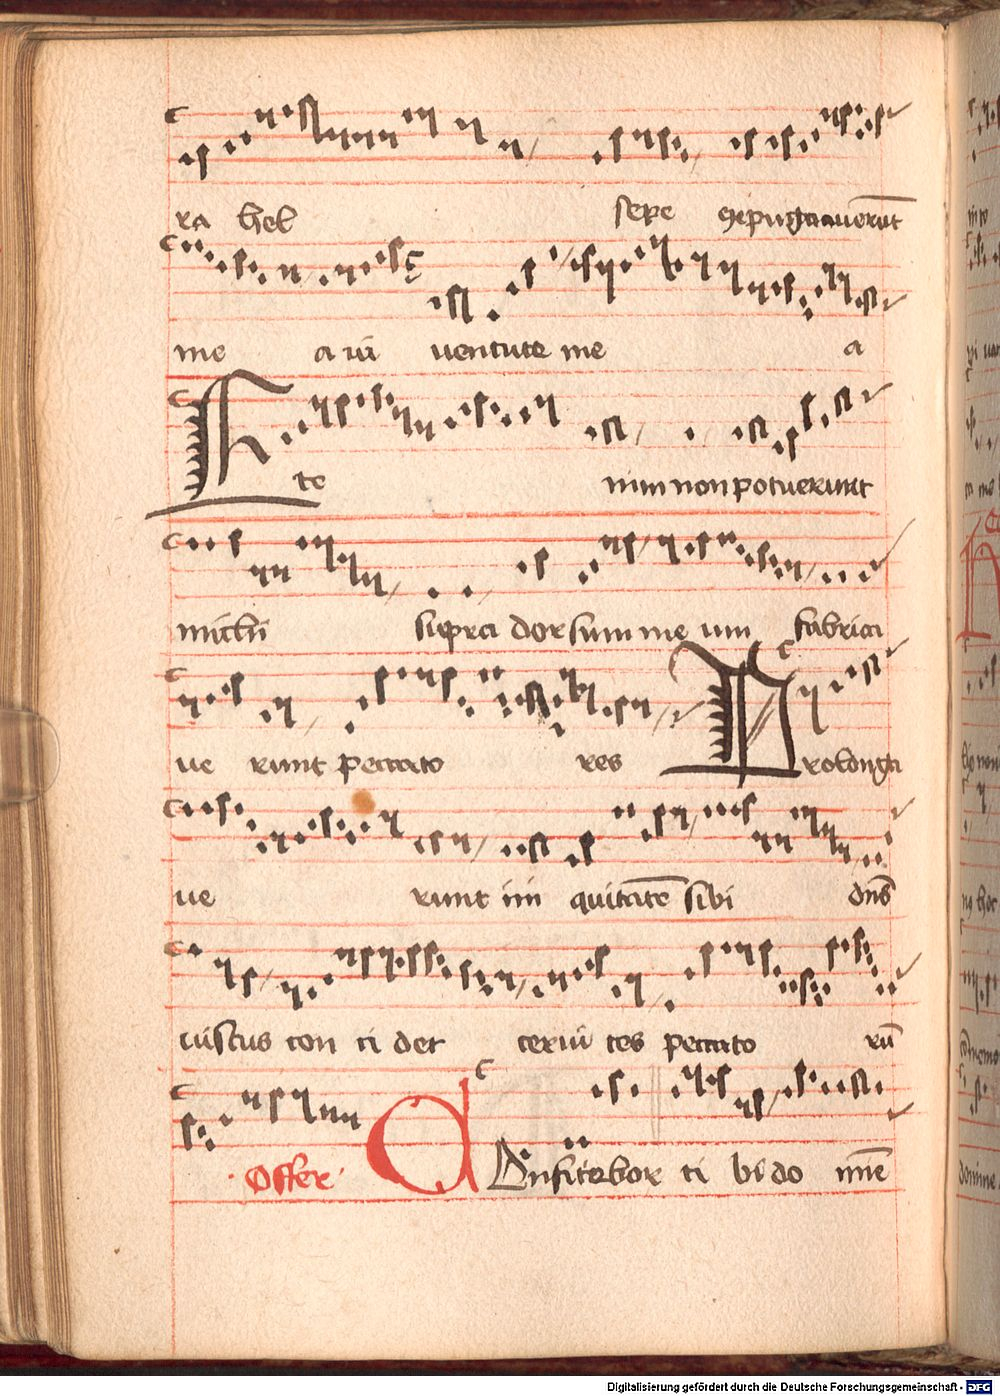 ra hel sepe expugnauerūt
me a iu uentute me a
Ete nim non potuerunt
michi supra dorsum me um fabrica
ue runt peccato res Prolonga
ue runt ini quitatē sibi dn̄s
iustus con ci det cerui ces peccato rū
Offer Confitebor ti bi do mīe
Digitalisierung gefördert durch die Deutsche Forschungsgemeinschaft - DFG